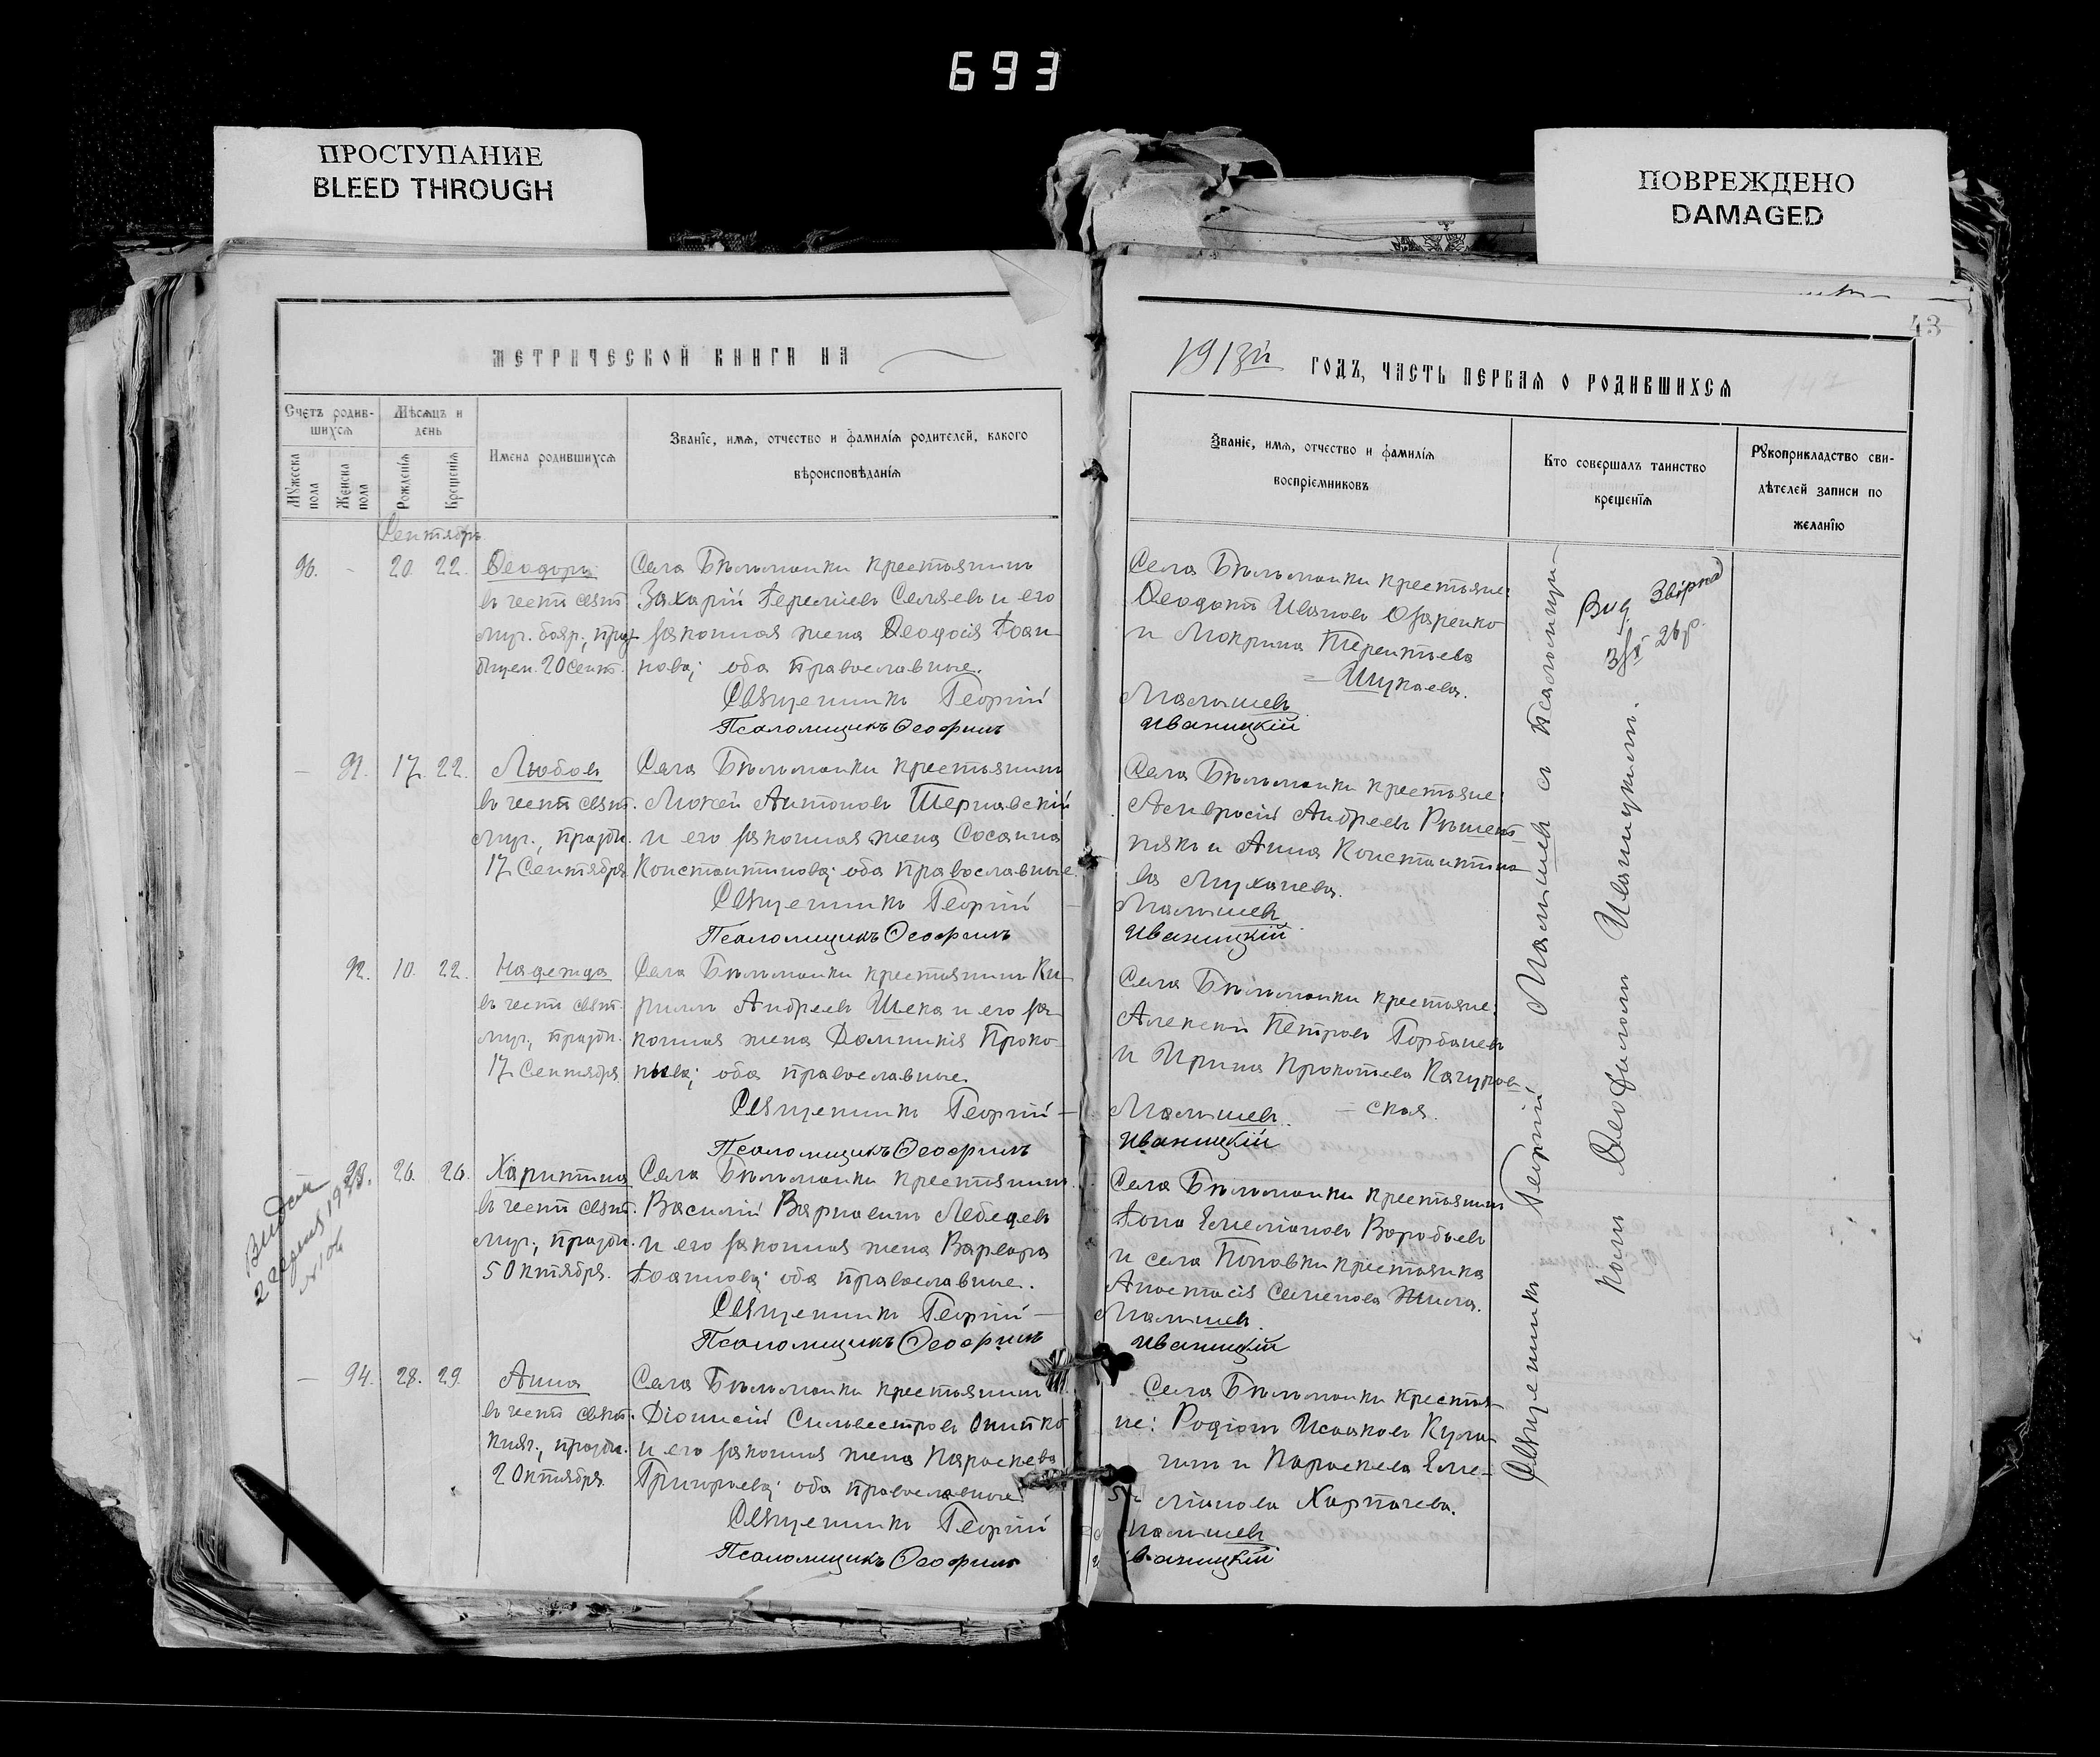 693
ПРОСТУПАНИЕ
BLEED THROUGH
ПОВРЕЖДЕНО
DAMAGED
43
МЕТРИЧЕСКОЙ КНИГИ НА
1913й ГОДЪ, ЧАСТЬ ПЕРВАЯ О РОДИВШИХСЯ
Счетъ родив-
шихся
Мѣсяцъ и
день
Мужеска
пола
Женска
пола
Рожденія
Крещенія
Имена родившихся
Званіе, имя, отчество и фамилія родителей, какого
вѣроисповѣданія
Званіе, имя, отчество и фамилія
воспріемниковъ
Кто совершалъ таинство
крещенія
Рукоприкладство сви-
дѣтелей записи по
желанію
Сентябрь
96. - 20. 22. Ѳеодоръ
въ честь свят.
муч. бояр., празд-
20 Сент.
Села Бѣльманки крестьянинъ
Захарій и его
законная жена Ѳеодосія Іоан-
нова; оба православные.
Священникъ Георгій
Псаломщикъ Ѳеофилъ
Села Бѣльманки крестьяне:
Ѳеодотъ Ивановъ
и Мокрина Терентьева
Шукаева.
Малышевъ
Иваницкій
— 91. 17. 22. Любовь
въ честь свят.
муч., праздн.
17 Сентября
Села Бѣльманки крестьянинъ
Мокей Антоновъ Тернавскій
и его законная жена Сосанна
Константинова; оба православные.
Священникъ Георгій
Псаломщикъ Ѳеофилъ
Села Бѣльманки крестьяне:
Амвросій Андреевъ Рѣшет-
някъ и Анна Константино-
ва Мухачева.
Малышевъ
Иваницкій
92. 10. 22. Надежда
въ честь свят.
муч., праздн.
17 Сентября
Села Бѣльманки крестьянинъ Ки-
риллъ Андреевъ Шека и его за-
конная жена Домникія Проко-
пьева; оба православные.
Священникъ Георгій —
Псаломщикъ Ѳеофилъ
Села Бѣльманки крестьяне:
Алексей Петровъ Горбачевъ
и Ирина Прокопьева Качуров-
ская.
Малышевъ
Иваницкій
93. 26. 26. Харитина
въ честь свят.
муч., праздн.
5 Октября.
Села Бѣльманки крестьянинъ
Василій Лебедевъ
и его законная жена Варвара
Іоаннова; оба православные.
Священникъ Георгій —
Псаломщикъ Ѳеофилъ
Села Бѣльманки крестьянинъ
Іона Емеліановъ Воробьевъ
и села Поповки крестьянка
Анастасія Семенова Жила.
Малышевъ
Иваницкій
— 94. 28. 29. Анна
въ честь свят.
княг., праздн.
2 Октября
Села Бѣльманки крестьянинъ
Діонисій Сильвестровъ Онипко
и его законная жена Параскева
Григорьева; оба православные
Священникъ Георгій
Псаломщикъ Ѳеофилъ
Села Бѣльманки крестья-
не: Родіонъ Исааковъ Кула-
гинъ и Параскева Еме-
ліанова Харпачева.
Малышевъ
Иваницкій
Священникъ Георгій Малышевъ съ Псаломщи-
комъ Ѳеофиломъ Иваницкимъ.